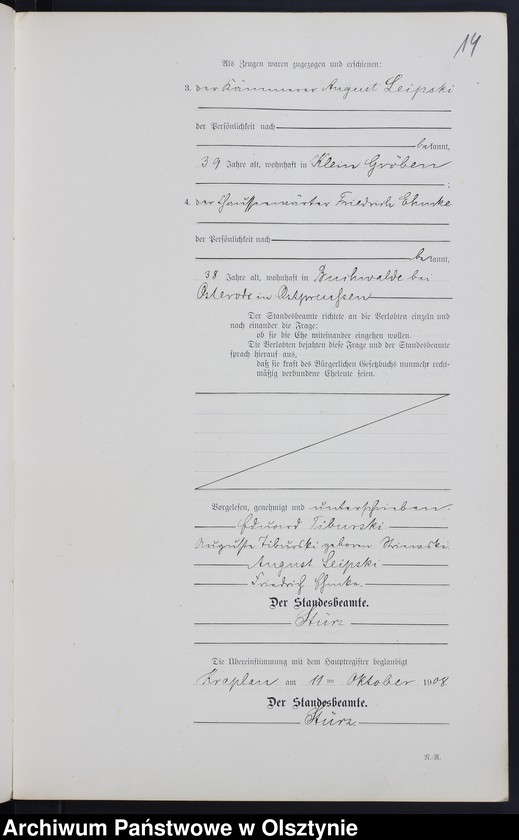 14
Als Zeugen waren zugezogen und erschienen:
3. der Kämmerer August Leipski
der Persönlichkeit nach
bekannt,
39 Jahre alt, wohnhaft in Klein Gröben
;
4. der Chausseewärter Friedrich Ehmke
der Persönlichkeit nach
bekannt,
38 Jahre alt, wohnhaft in Buchwalde bei
Osterode in Ostpreussen
Der Standesbeamte richtete an die Verlobten einzeln und
nach einander die Frage:
ob sie die Ehe miteinander eingehen wollen.
Die Verlobten bejahten diese Frage und der Standesbeamte
sprach hierauf aus,
daß sie kraft des Bürgerlichen Gesetzbuchs nunmehr recht-
mäßig verbundene Eheleute seien.
Vorgelesen, genehmigt und unterschrieben.
Eduard Tiburski
Auguste Tiburski geboren
August Leipski
Friedrich Ehmke.
Der Standesbeamte.
Stürz
Die Übereinstimmung mit dem Hauptregister beglaubigt
Kraplau am 11 ten Oktober 1908.
Der Standesbeamte.
Stürz.
R.-R.
Archiwum Państwowe w Olsztynie